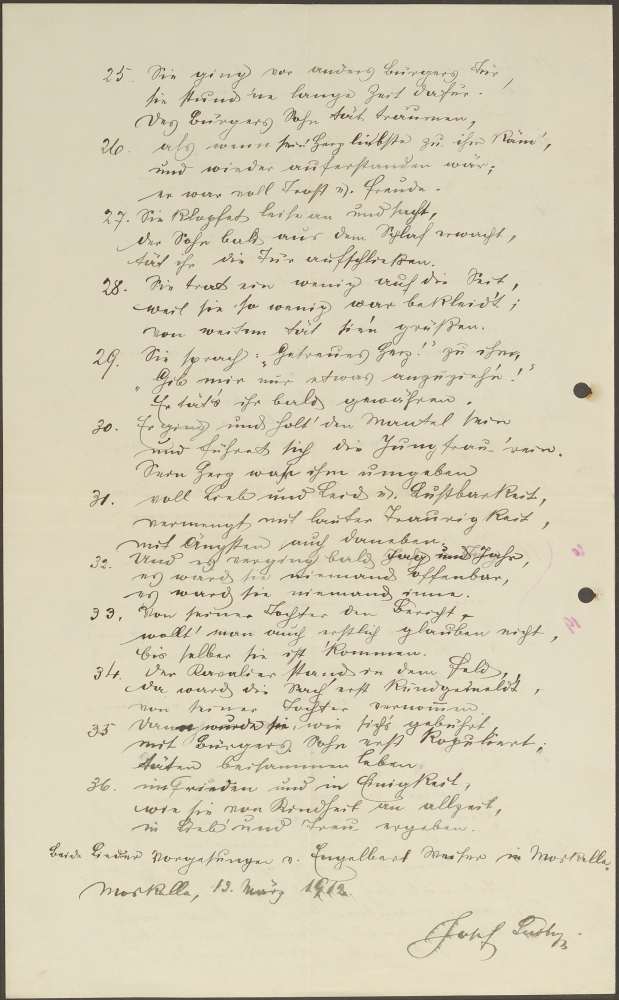 25. Sie ging vor anders Bürgers Tür,
sie stund 'ne lange Zeit dafür.
Des Bürgers Sohn tät träumen,
26. als wenn sein Herzliebste zu ihm käm',
und wieder auferstanden wär;
er war voll Trost u. Freude.
27. Sie klopfet leise an und sacht,
der Sohn bald aus dem Schlaf erwacht,
tät ihr die Tür aufschließen.
28. Sie trat ein wenig auf die Seit,
weil sie so wenig war bekleid't;
von weitem tät sie'n grüßen.
29. Sie sprach: "Getreues Herz!" zu ihm,
"Gib mir nur etwas anzuzieh'n!"
Er tät's ihr bald gewähren.
30. Er ging und holt' den Mantel sein
und führet sich die Jungfrau 'rein.
Sein Herz war ihm umgeben
31. voll Lieb und Leid u. Lustbarkeit,
vermengt mit lauter Traurigkeit,
mit Ängsten auch daneben.
32. Und es verging bald Tag und Jahr,
es ward sie niemand offenbar,
es ward sie niemand inne.
33. Von seiner Tochter den Bericht,
wollt' man auch erstlich glauben nicht,
bis selber sie ist 'kommen.
34. Der Kavalier stand in dem Feld,
da ward die Sach' erst kundgemeld't,
von seiner Tochter vernommen.
35 Dann wurde sie, wie sich's gebührt,
mit Bürgers Sohn erst kopuliert;
täten beisammen leben
36. in Frieden und in Einigkeit,
wie sie von Kindheit an allzeit,
in Lieb' und Treu ergeben.
Beide Lieder vorgesungen v. Engelbert in Moskelle.
Moskelle, 13. März 1912.
Josef